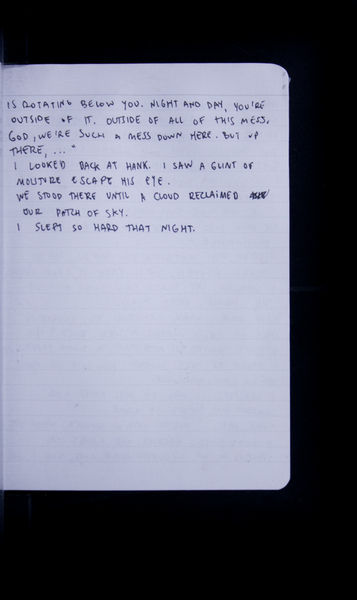 IS ROTATING BELOW YOU. NIGHT AND DAY, YOU'RE
OUTSIDE OF IT. OUTSIDE OF ALL OF THIS MESS.
GOD, WE'RE SUCH A MESS DOWN HERE. BUT UP
THERE, ..."
I LOOKED BACK AT HANK. I SAW A GLINT OF
MOISTURE ESCAPE HIS EYE.
WE STOOD THERE UNTIL A CLOUD RECLAIMED
OUR PATCH OF SKY.
I SLEPT SO HARD THAT NIGHT.